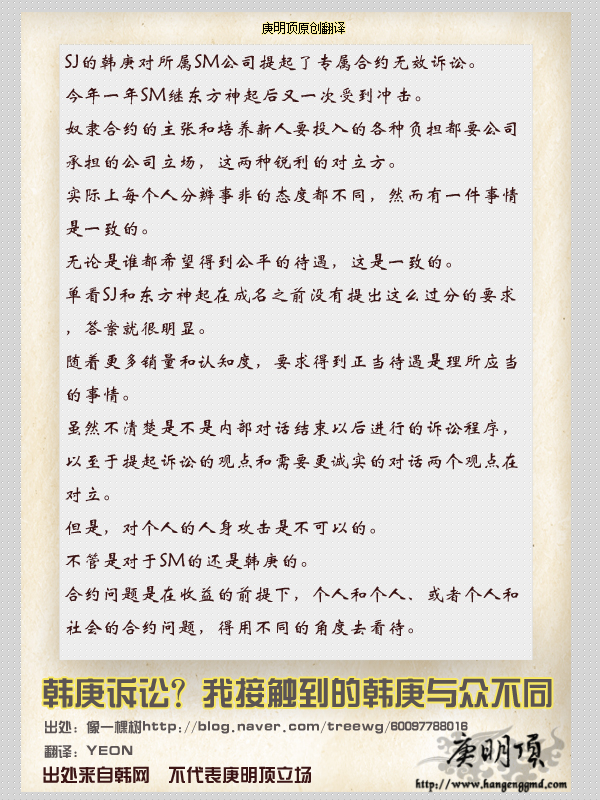 庚明顶原创翻译
SJ的韩庚对所属SM公司提起了专属合约无效诉讼。
今年一年SM继东方神起后又一次受到冲击。
奴隶合约的主张和培养新人要投入的各种负担都要公司
承担的公司立场，这两种锐利的对立方。
实际上每个人分辨事非的态度都不同，然而有一件事情
是一致的。
无论是谁都希望得到公平的待遇，这是一致的。
单看SJ和东方神起在成名之前没有提出这么过分的要求
，答案就很明显。
随着更多销量和认知度，要求得到正当待遇是理所应当
的事情。
虽然不清楚是不是内部对话结束以后进行的诉讼程序，
以至于提起诉讼的观点和需要更诚实的对话两个观点在
对立。
但是，对个人的人身攻击是不可以的。
不管是对于SM的还是韩庚的。
合约问题是在收益的前提下，个人和个人、或者个人和
社会的合约问题，得用不同的角度去看待。
韩庚诉讼？我接触到的韩庚与众不同
出处：像一棵树http://blog.naver.com/treewg/60097788016
翻译：YEON
出处来自韩网　不代表庚明顶立场
庚明顶
http://www.hangenggmd.com/